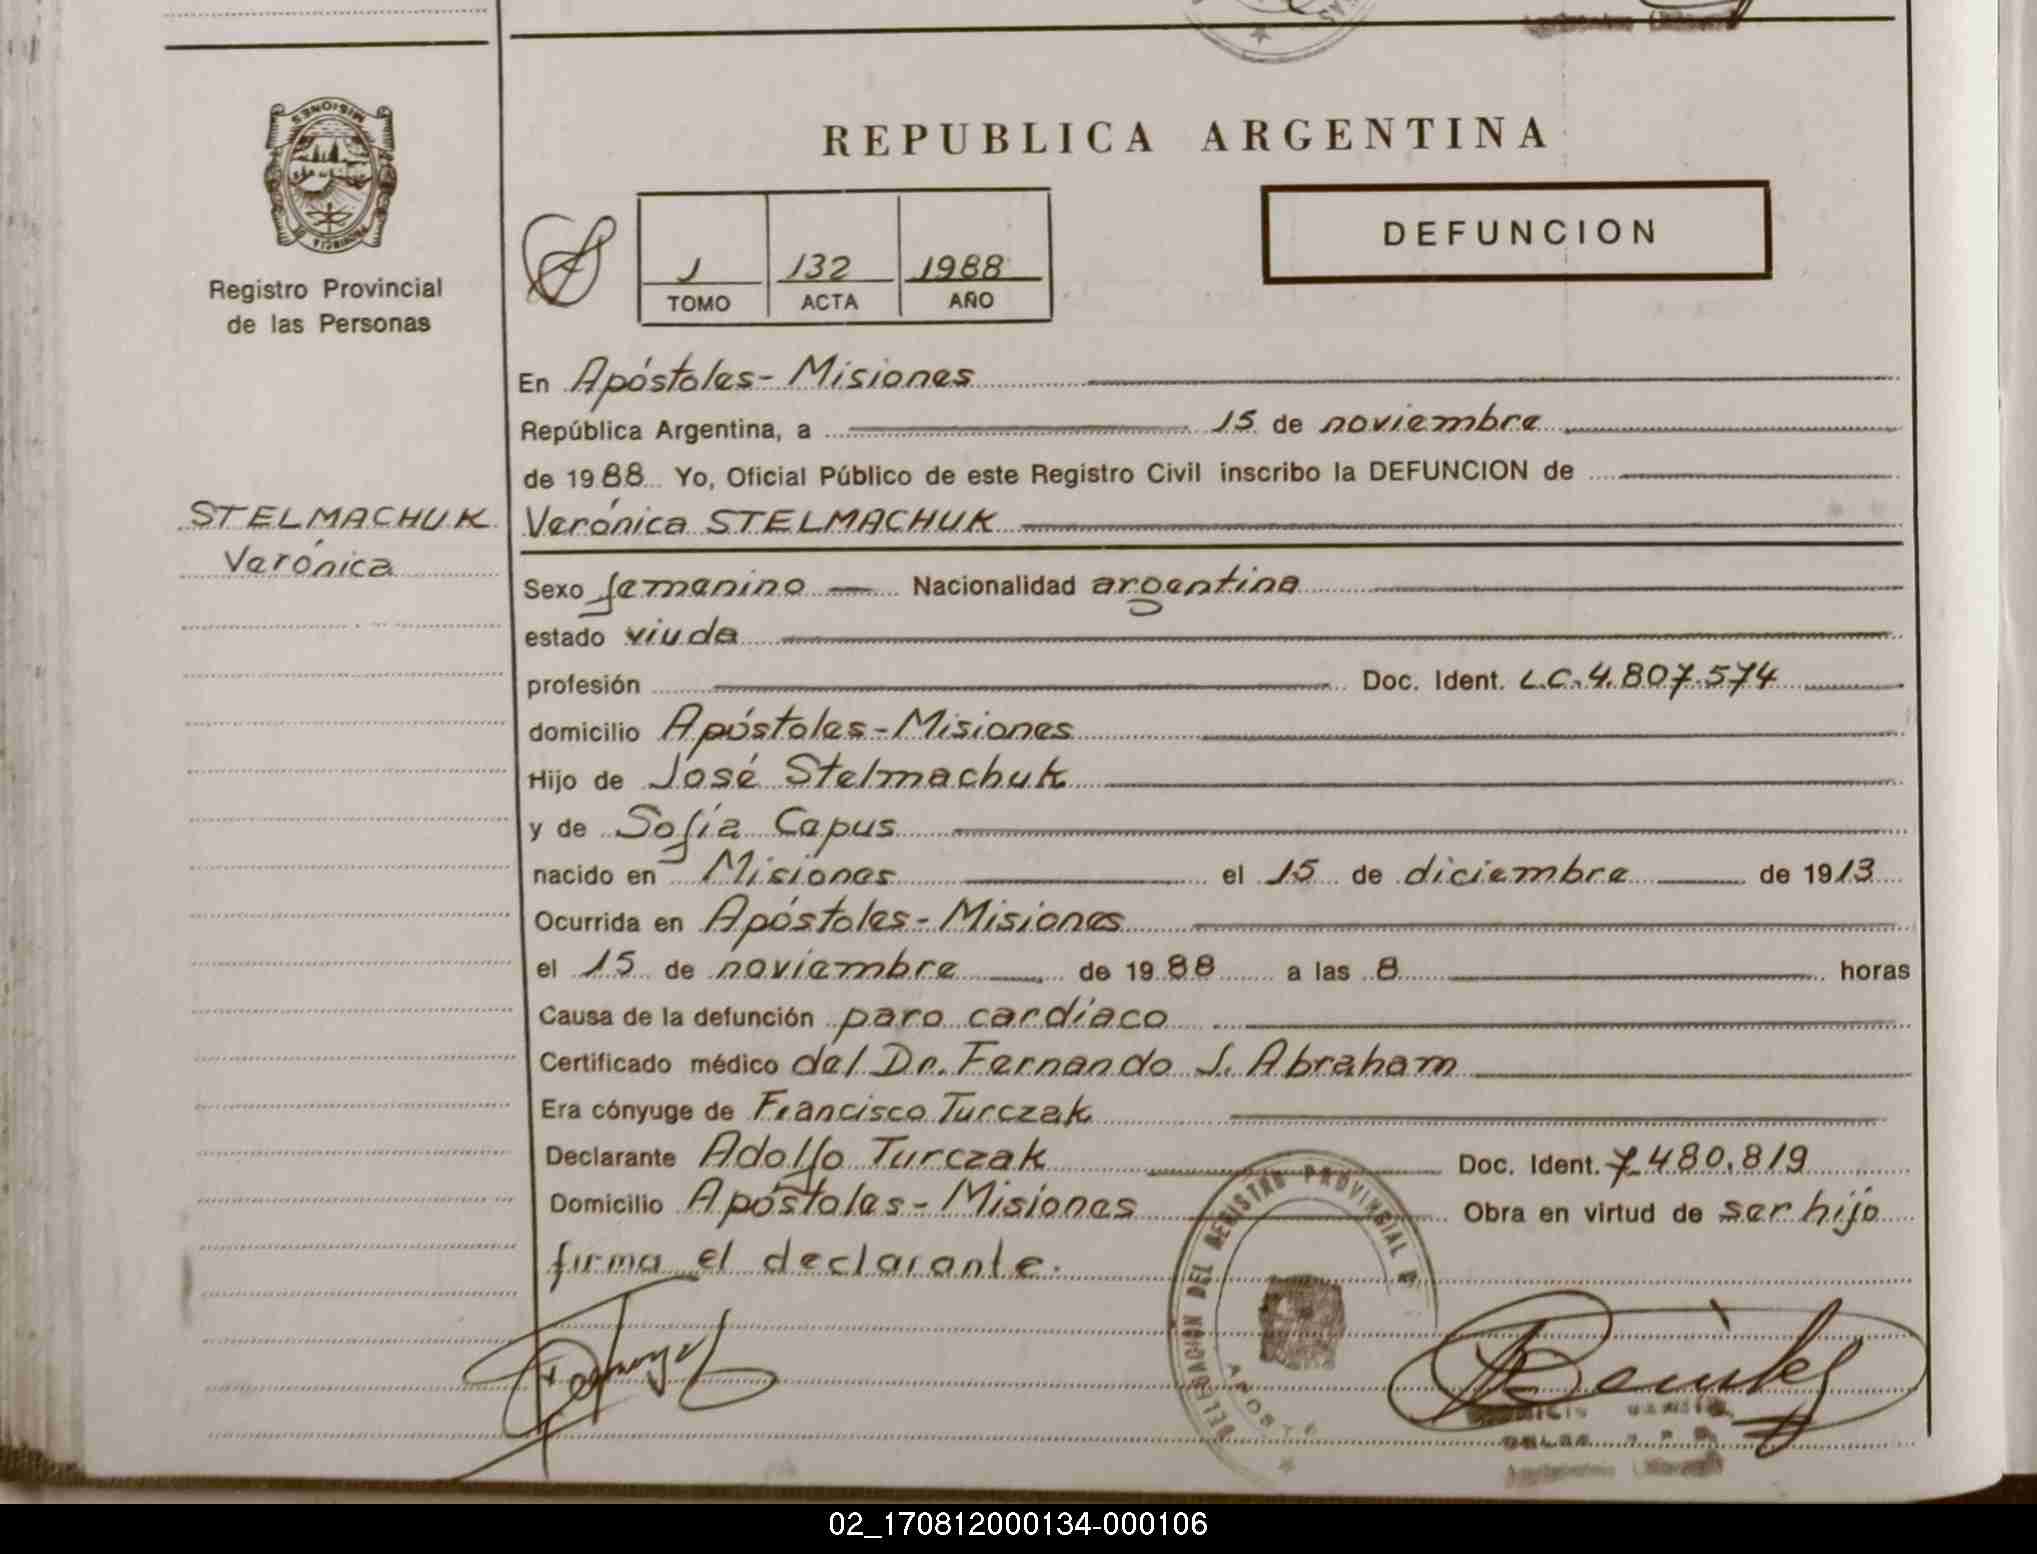 MISIONES
PROVINCIA DE
Registro Provincial
de las Personas
STELMACHUK
Verónica
REPUBLICA ARGENTINA
1 132 1988
TOMO ACTA AÑO
DEFUNCION
En Apóstoles - Misiones
República Argentina, a 15 de noviembre
de 1988 Yo, Oficial Público de este Registro Civil inscribo la DEFUNCION de
Verónica STELMACHUK
Sexo femenino Nacionalidad argentina
estado viuda
profesión Doc. Ident. L.C. 4.807.574
domicilio Apóstoles - Misiones
Hijo de José Stelmachuk
y de Sofía Capus
nacido en Misiones el 15 de diciembre de 1913
Ocurrida en Apóstoles - Misiones
el 15 de noviembre de 1988 a las 8 horas
Causa de la defunción paro cardíaco
Certificado médico del Dr. Fernando J. Abraham
Era cónyuge de Francisco Turczak
Declarante Adolfo Turczak Doc. Ident. 7.480.819
Domicilio Apóstoles - Misiones Obra en virtud de ser hijo
firma el declarante.
DELEGACION DEL REGISTRO PROVINCIAL
02_170812000134-000106